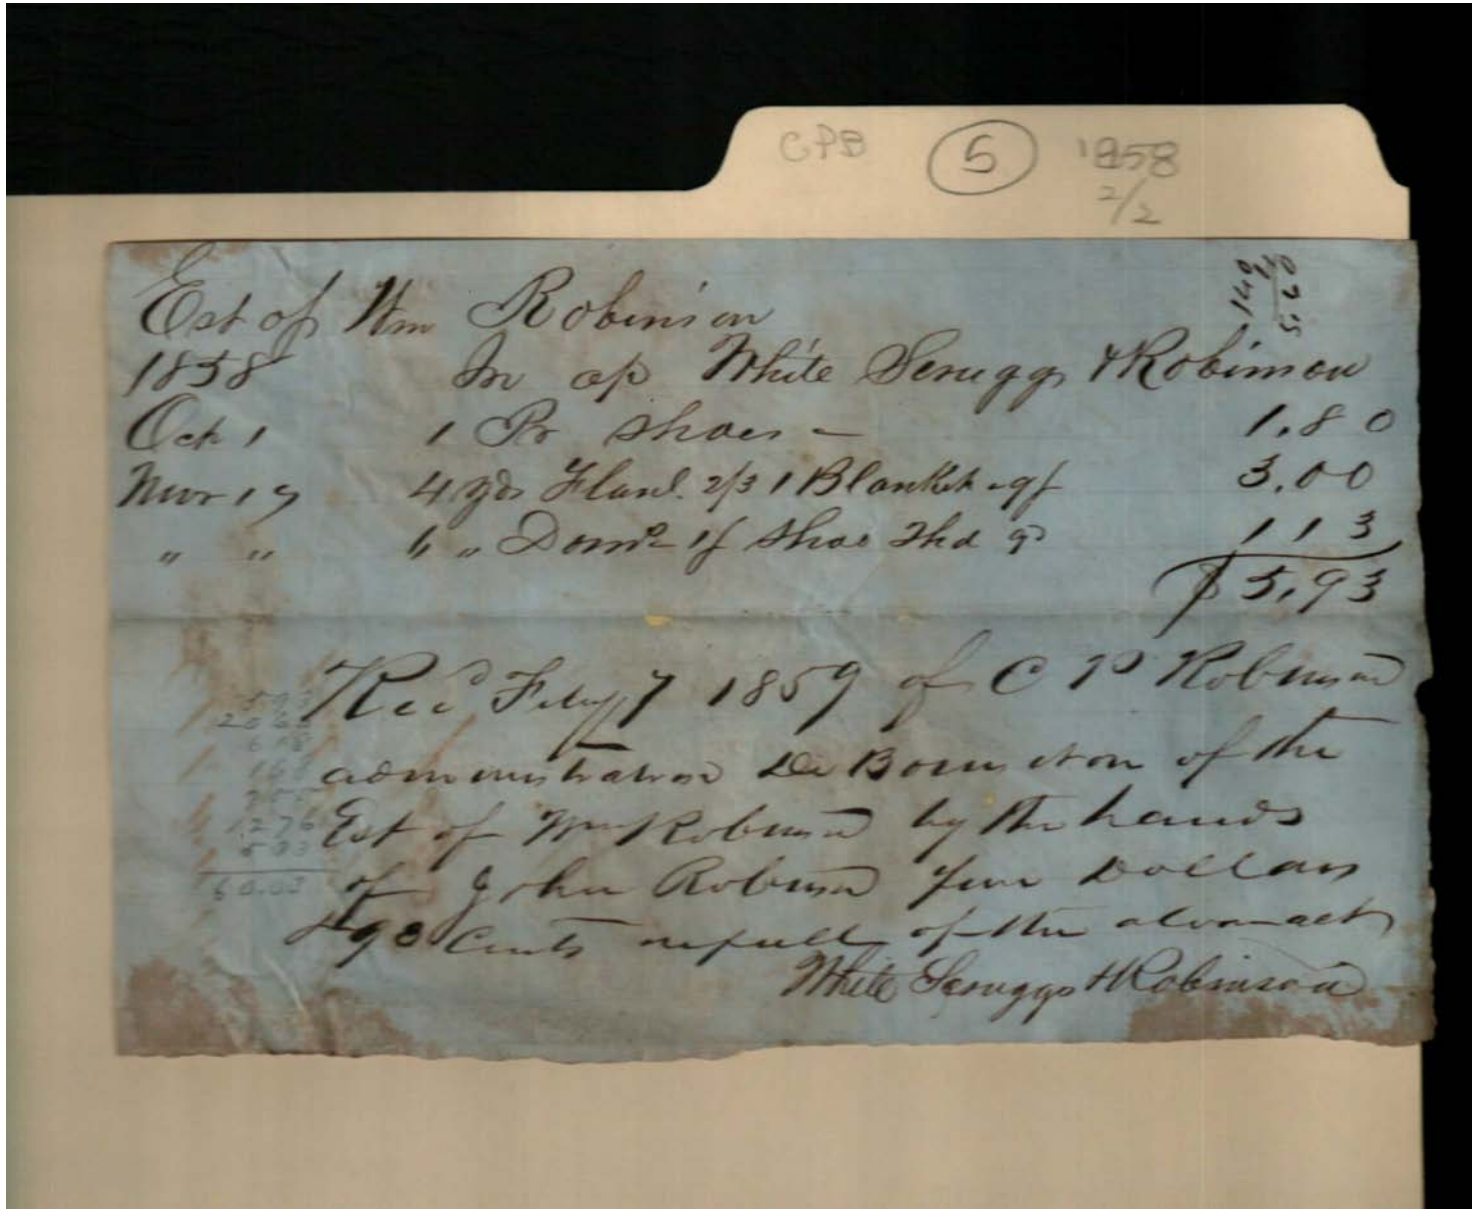 CPB (5) 1858
2/2
Est of Wm Robinson
1858 In a/c White Scruggs & Robinson
Oct 1 1 Pr Shoes — 1.80
Nov 17 4 yds Flanl. 2/3 1 Blanket 9/ 3.00
" " 6 " Dom 1/ Shoe Thd 1 13
$5.93
Recd Feby 7 1859 of C P Robinson
administrator De Bonis non of the
Est of Wm Robinson by the hands
of John Robinson five Dollars
& 93 Cents in full of the above act
White Scruggs & Robinson
140
5.60
60.03